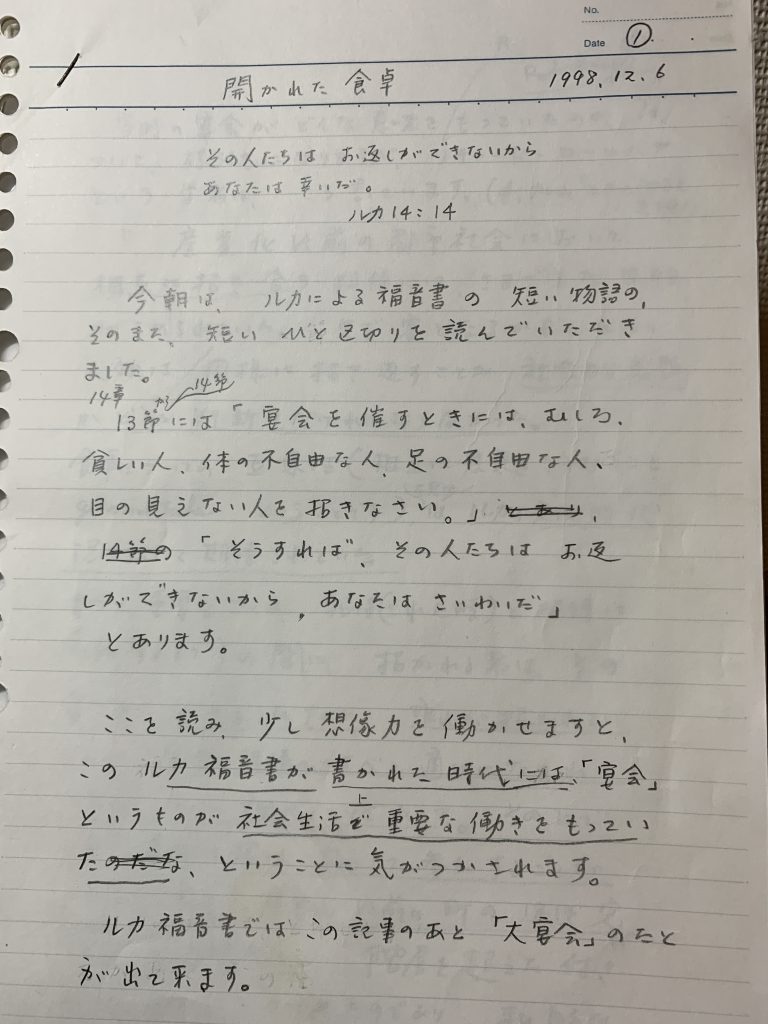 No.
Date ①. .
開かれた食卓 1998.12.6
その人たちは お返しができないから
あなたは幸いだ。
ルカ14:14
今朝は、ルカによる福音書の 短い物語の、
そのまた、短い ひと区切りを読んでいただき
ました。
14章 から 14節
13節には「宴会を催すときには、むしろ、
貧しい人、体の不自由な人、足の不自由な人、
目の見えない人を招きなさい。」とあり、
14節の「そうすれば、その人たちは お返
しができないから、あなたは さいわいだ」
とあります。
ここを読み、少し想像力を働かせますと、
この ルカ福音書が 書かれた時代には、「宴会」
上
というものが 社会生活で 重要な働きをもってい
たのだな、ということに気がつかされます。
ルカ福音書では この記事のあと 「大宴会」のたと
が出て来ます。